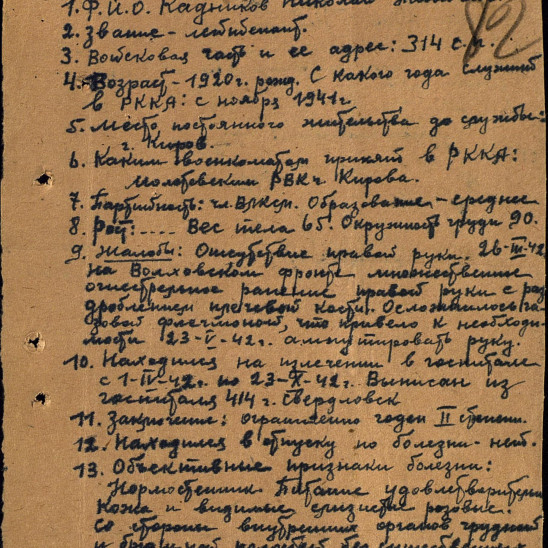 1. Ф.И.О. Кадников Николай
2. Звание - лейтенант.
3. Войсковая часть и ее адрес: 314 с.п.
4. Возраст - 1920г. рожд. С какого года служит
в РККА: с ноября 1941г.
5. Место постоянного жительства до службы:
г. Киров.
6. Каким военкоматом принят в РККА:
Молотовским РВК г. Кирова.
7. Партийность: чл. ВЛКСМ. Образование - среднее
8. Рост: .... Вес тела 65. Окружность груди 90.
9. Жалобы: Отсутствие правой руки. 26-III-42
на Волховском фронте множественное
огнестрельное ранение правой руки с раз
дроблением плечевой кости. Осложнилось га-
зовой флегмоной, что привело к необходи-
мости 23-V-42г. ампутировать руку.
10. Находился на излечении в госпитале
с 1-IV-42г. по 23-X-42г. Выписан из
госпиталя 414 г. Свердловск
11. Заключение: ограниченно годен II степени.
12. Находился в отпуску по болезни - нет.
13. Объективные признаки болезни:
Нормостеник. Питание удовлетворительн
Кожа и видимые слизистые розовые.
Со стороны внутренних органов грудной
и брюшной полостей без